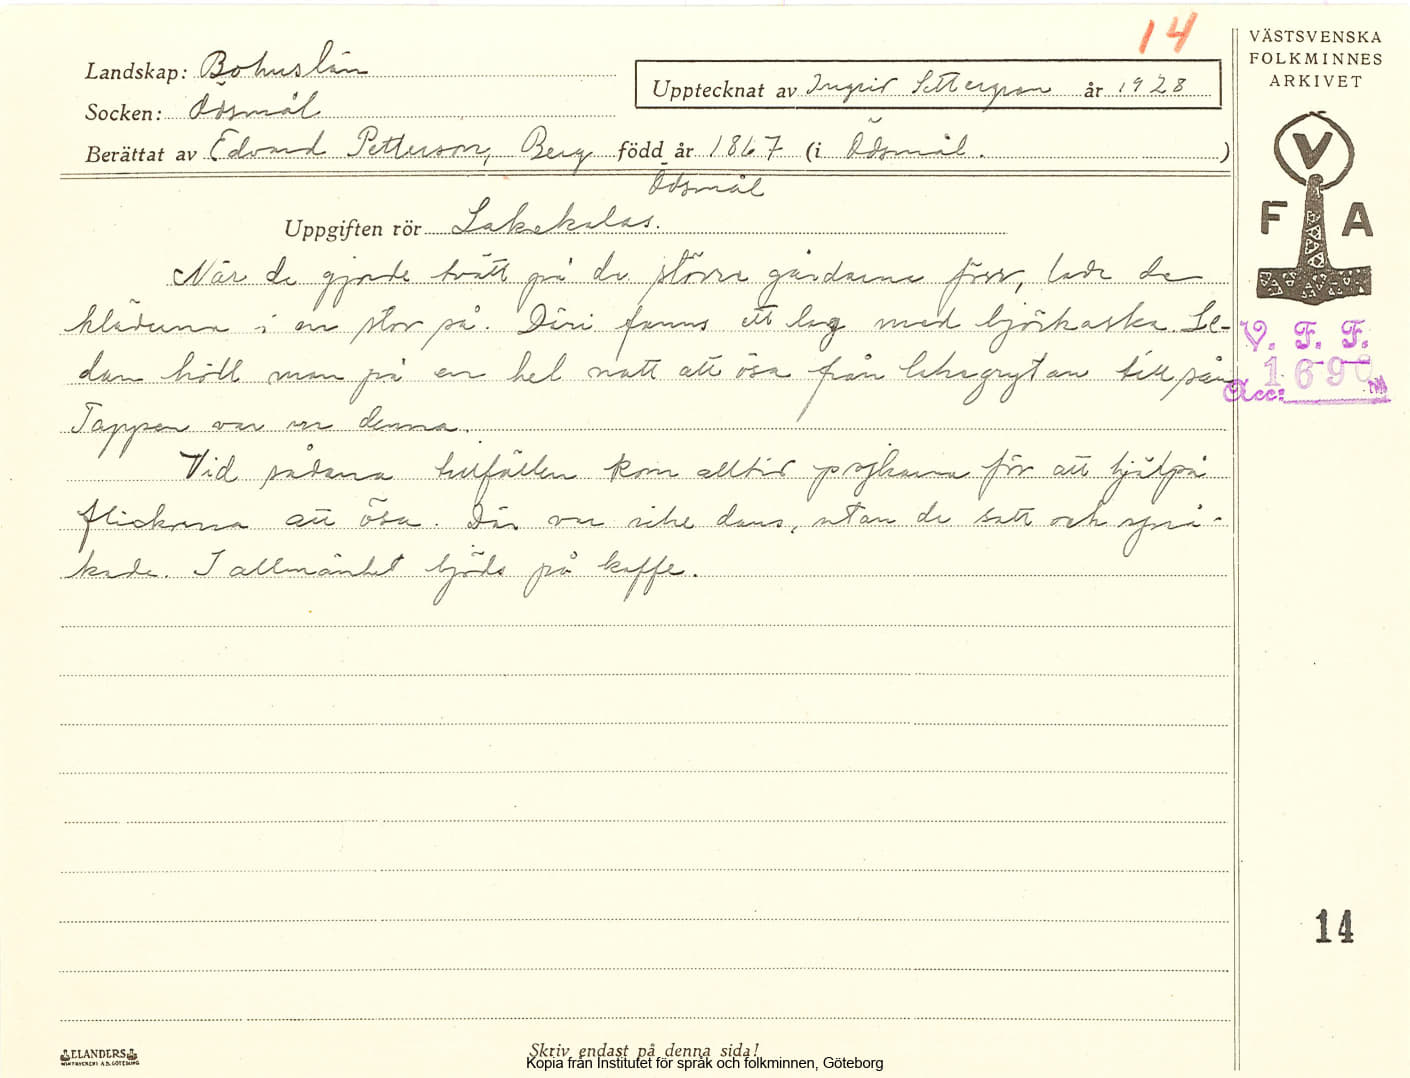 14
VÄSTSVENSKA
FOLKMINNES
ARKIVET
Landskap: Bohuslän
Upptecknat av Ingrid Settergran år 1928
Socken: Ödsmål
Berättat av Edvard Petterson, Berg född år 1867 (i Ödsmål.)
Ödsmål
V
F A
Uppgiften rör Lakekalas.
När de gjorde tvätt på de större gårdarna förr, lade de
kläderna i en stor så. Däri fanns ett lag med björkaska. Se-
dan höll man på en hel natt att ösa från lakegrytan till sån
Tappen var ur denna.
Vid sådana tillfällen kom alltid pojkarna för att hjälpa
flickorna att ösa. Där var icke dans, utan de satt och språ-
kade. I allmänhet bjöds på kaffe.
V. F. F.
Acc: 1690
14
ELANDERS
Skriv endast på denna sida!
Kopia från Institutet för språk och folkminnen, Göteborg